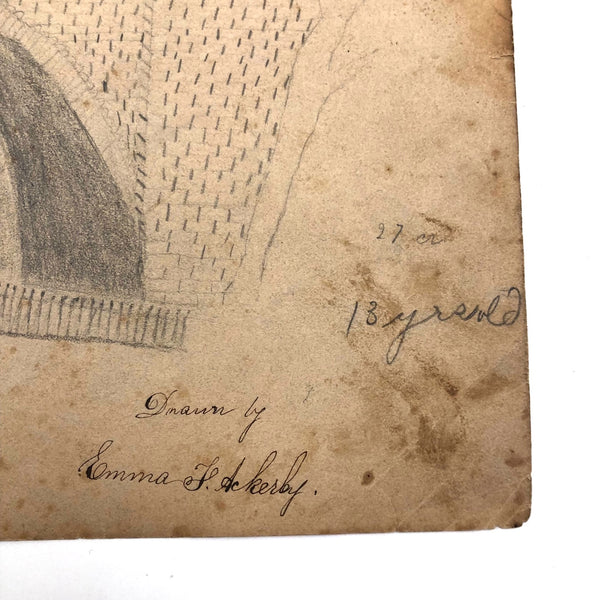 27
13 yrs old
Drawn by
Emma F. Ackerby.